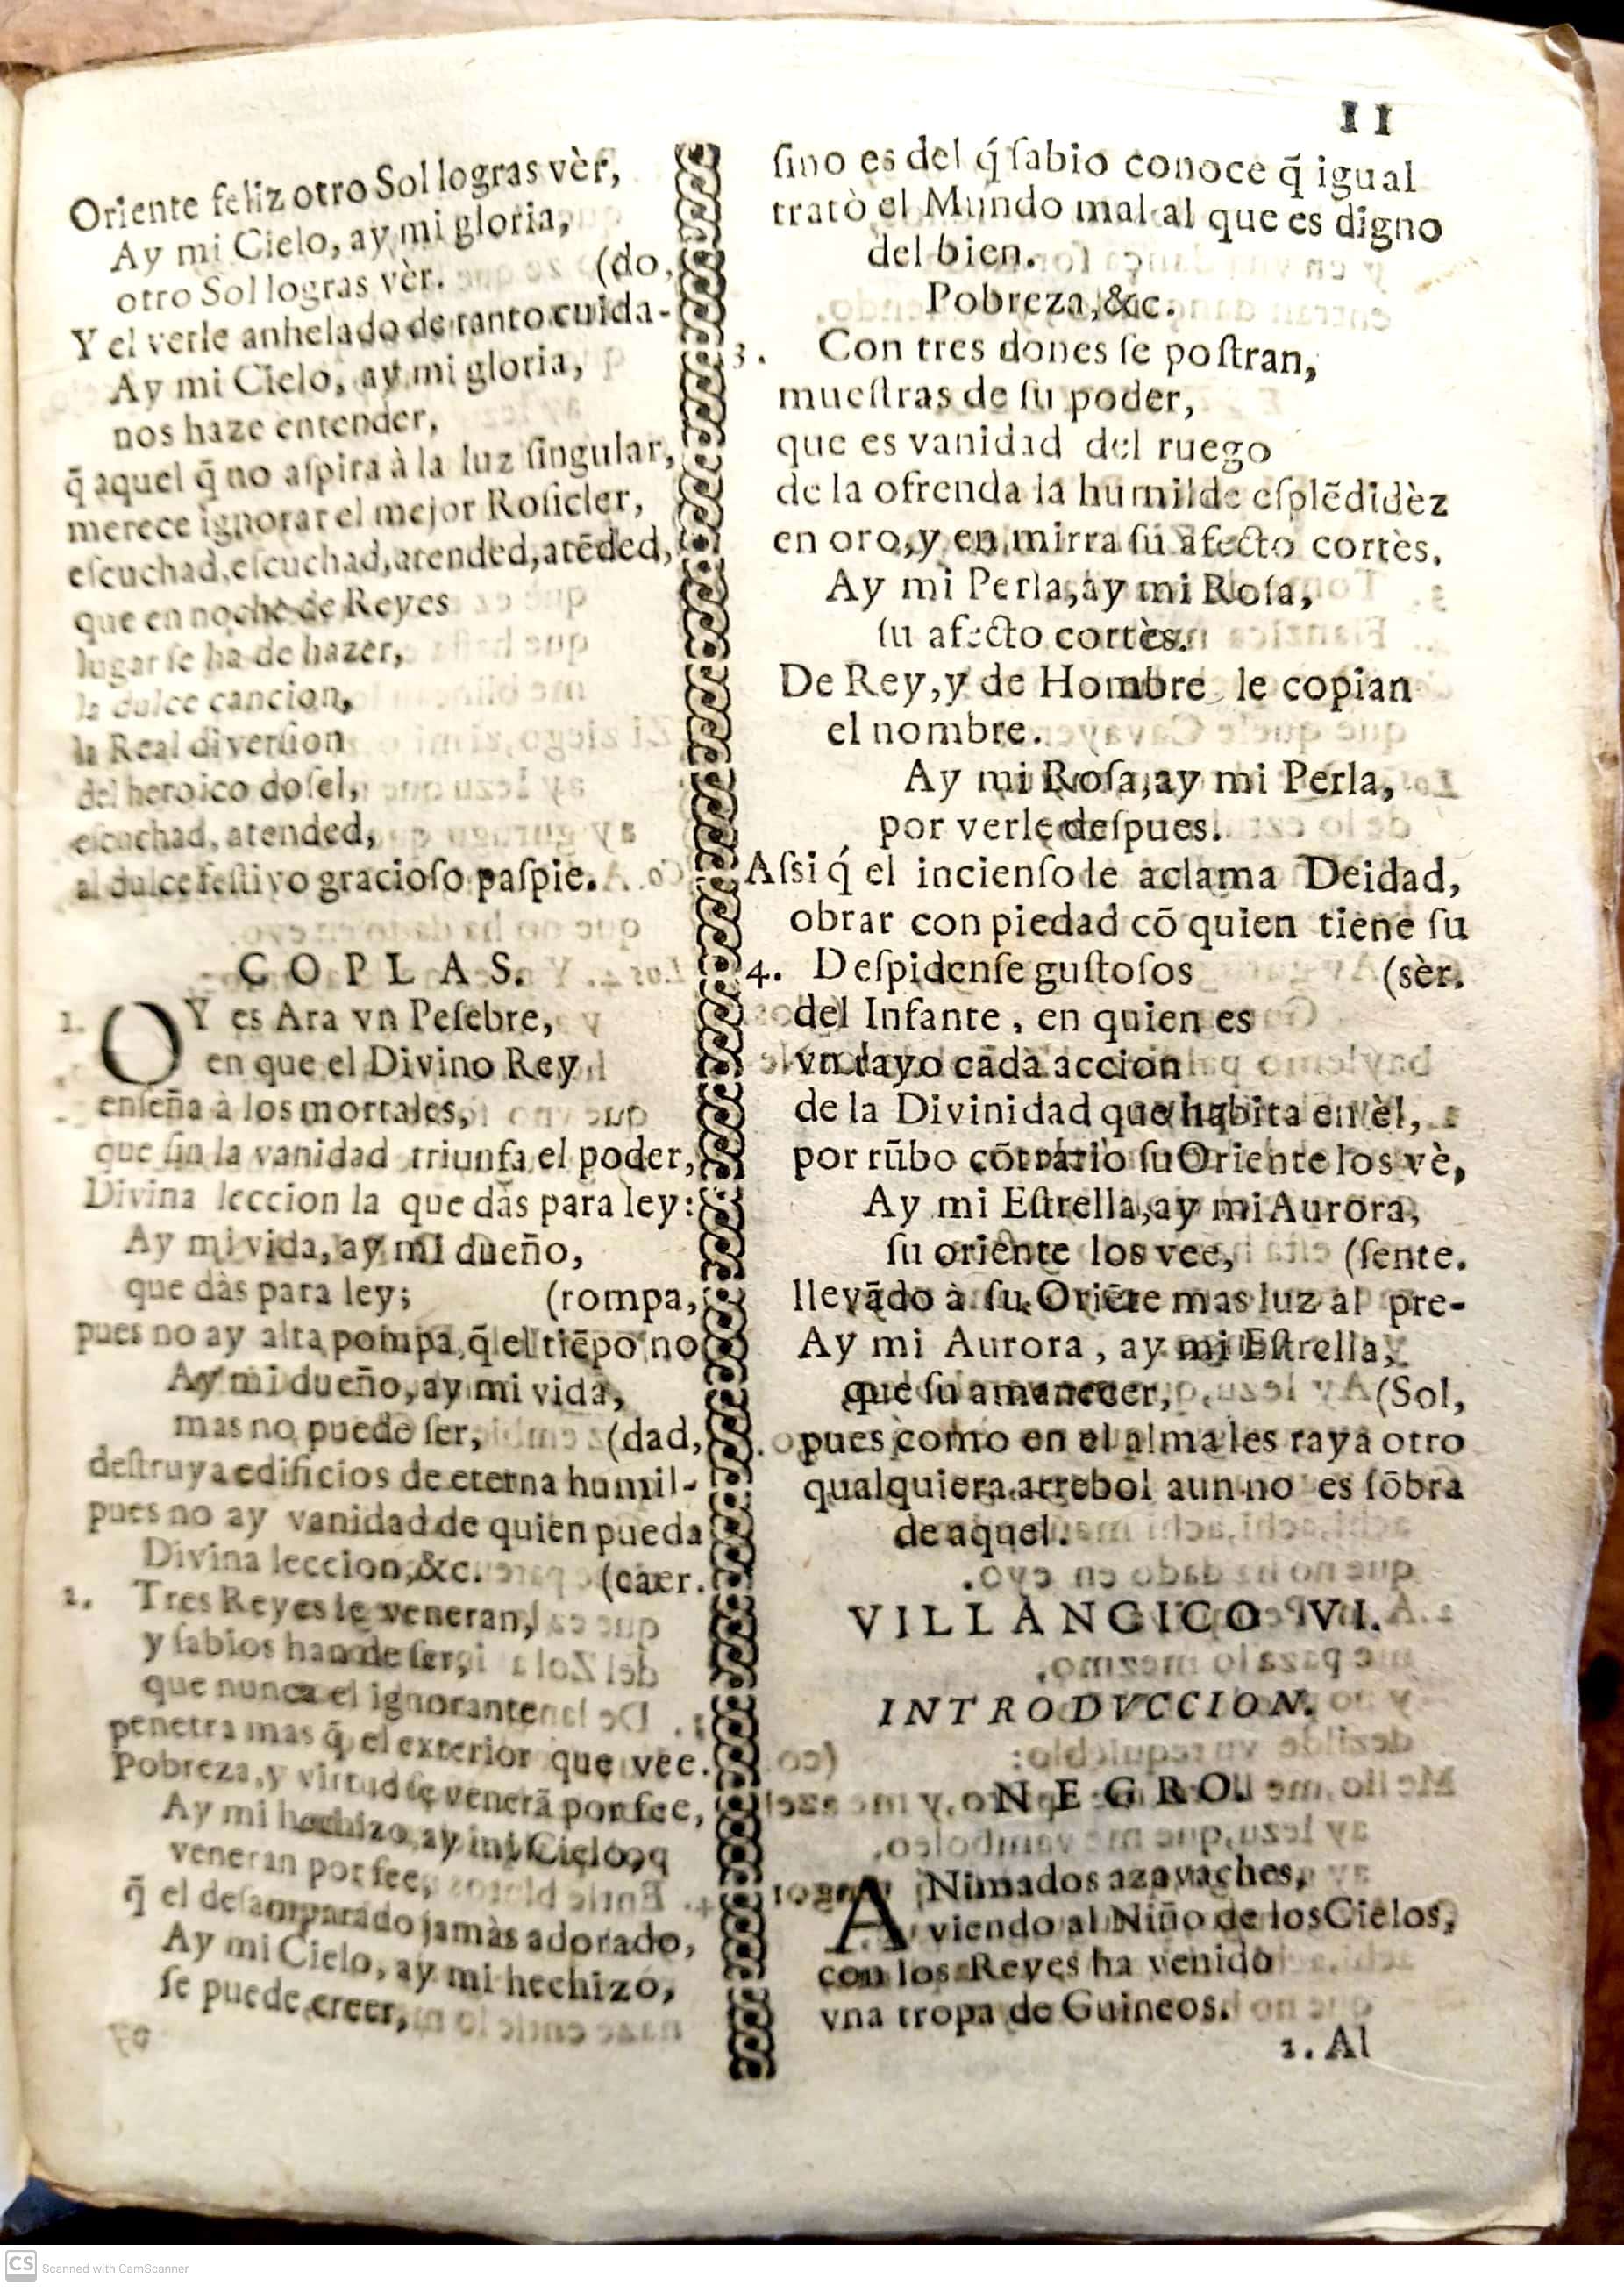 11
Oriente feliz otro Sol logras vèr,
Ay mi Cielo, ay mi gloria,
otro Sol logras vèr. (do,
Y el verle anhelado de tanto cuida-
Ay mi Cielo, ay mi gloria,
nos haze entender,
q̃ aquel q̃ no aſpira à la luz ſingular,
merece ignorar el mejor Roſicler,
eſcuchad, eſcuchad, atended, atẽded,
que en noche de Reyes
lugar ſe ha de hazer,
la dulce cancion,
la Real diverſion
del heroico doſel,
eſcuchad, atended,
al dulce feſtivo gracioſo paſpie.
COPLAS.
1. OY es Ara vn Peſebre,
en que el Divino Rey
enſeña à los mortales,
que ſin la vanidad triunfa el poder,
Divina leccion la que dàs para ley:
Ay mi vida, ay mi dueño,
que dàs para ley; (rompa,
pues no ay alta pompa, q̃ el tiẽpo no
Ay mi dueño, ay mi vida,
mas no puede ſer, (dad,
deſtruya edificios de eterna humil-
pues no ay vanidad de quien pueda
Divina leccion, &c. (caer.
2. Tres Reyes le veneran,
y ſabios han de ſer,
que nunca el ignorante
penetra mas q̃ el exterior que vee.
Pobreza, y virtud ſe venerã por fee,
Ay mi hechizo, ay mi Cielo,
veneran por fee,
q̃ el deſamparado jamàs adorado,
Ay mi Cielo, ay mi hechizo,
ſe puede creer,
ſino es del q́ ſabio conoce q̃ igual
tratò el Mundo mal al que es digno
del bien.
Pobreza, &c.
3. Con tres dones ſe poſtran,
mueſtras de ſu poder,
que es vanidad del ruego
de la ofrenda la humilde eſplẽdidèz
en oro, y en mirra ſu afecto cortès.
Ay mi Perla, ay mi Roſa,
ſu afecto cortès.
De Rey, y de Hombre le copian
el nombre.
Ay mi Roſa, ay mi Perla,
por verle deſpues.
Aſsi q́ el incienſo le aclama Deidad,
obrar con piedad cõ quien tiene ſu
4. Deſpidenſe guſtoſos (sèr.
del Infante, en quien es
vn rayo cada accion
de la Divinidad que habita en èl,
por rũbo cõtrario ſu Oriente los vè,
Ay mi Eſtrella, ay mi Aurora,
ſu oriente los vee, (ſente.
llevãdo à ſu Oriẽte mas luz al pre-
Ay mi Aurora, ay mi Eſtrella,
que ſu amanecer, (Sol,
pues como en el alma les raya otro
qualquiera arrebol aun no es ſõbra
de aquel.
VILLANCICO VI.
INTRODVCCION.
NEGRO.
ANimados azavaches,
viendo al Niño de los Cielos,
con los Reyes ha venido
vna tropa de Guineos.
1. Al
CS Scanned with CamScanner